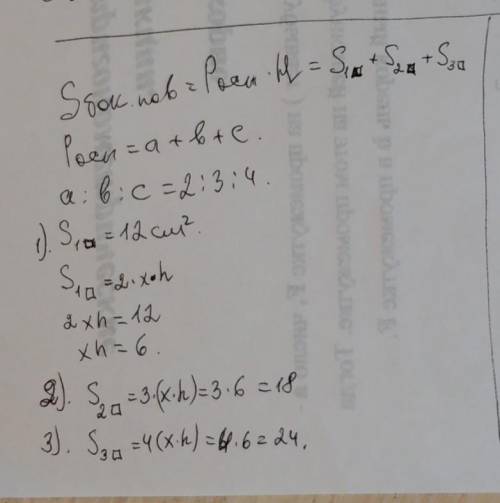 Sбок.пов = Pосн · H = S₁□ + S₂□ + S₃□
Pосн = a + b + c.
a : b : c = 2 : 3 : 4.
1). S₁□ = 12 см².
S₁□ = 2·x·h
2xh = 12
xh = 6.
2). S₂□ = 3·(x·h) = 3·6 = 18
3). S₃□ = 4(x·h) = 4·6 = 24.